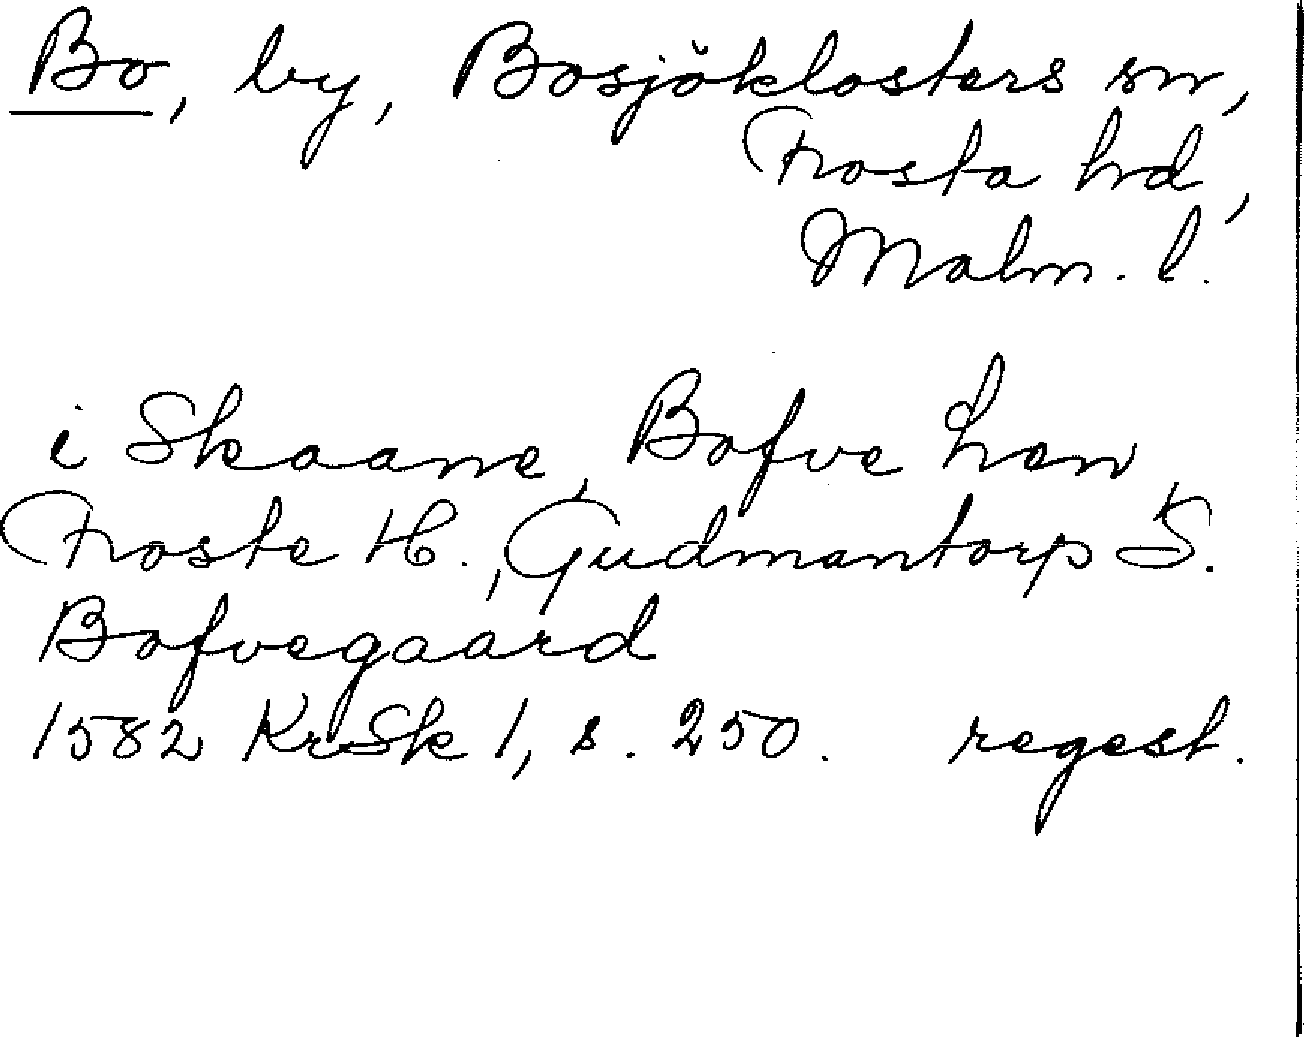 Bo, by, Bosjöklosters sn,
Frosta hd,
Malm. l.
i Skaane, Bofve Len
Froste H., Gudmantorp S.
Bofvegaard
1582 KrSk 1, s. 250. regest.